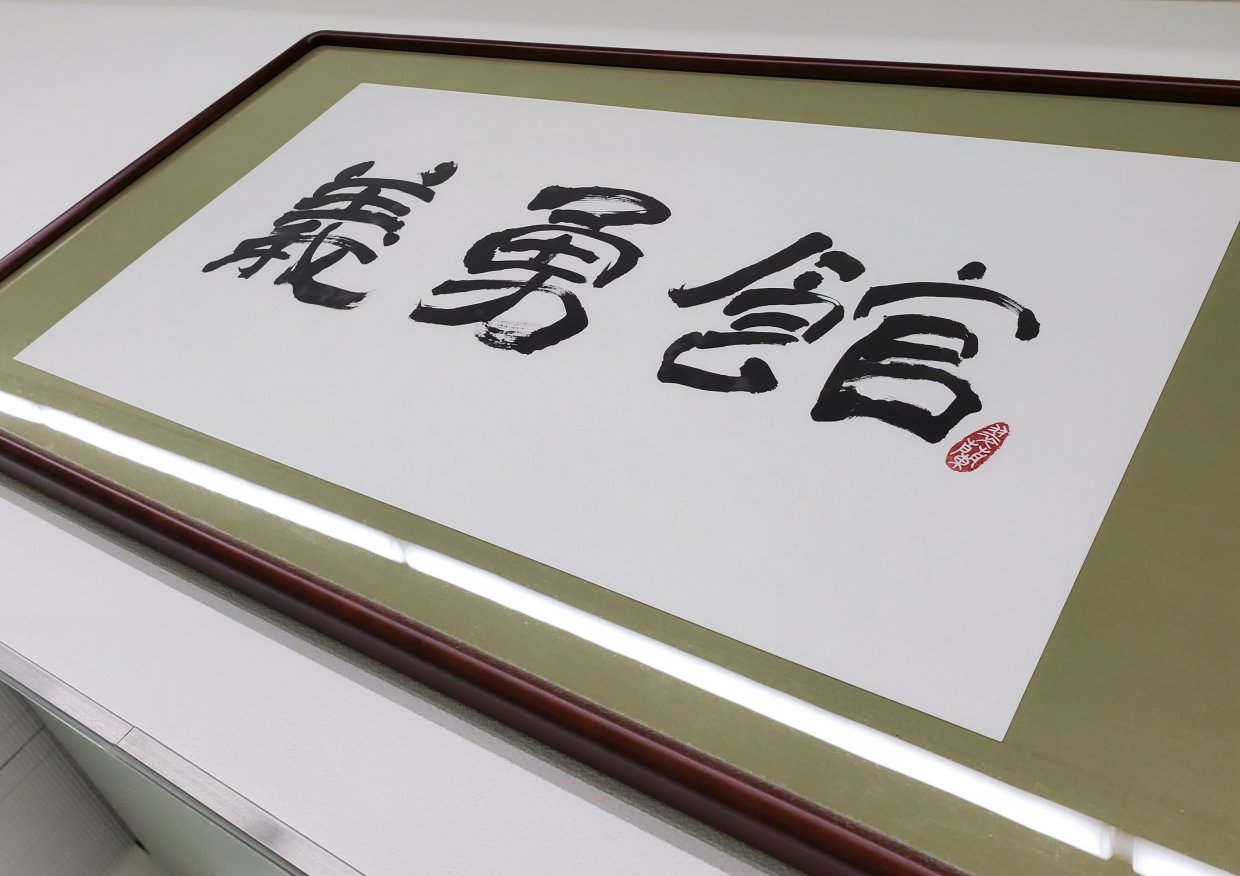 義勇館